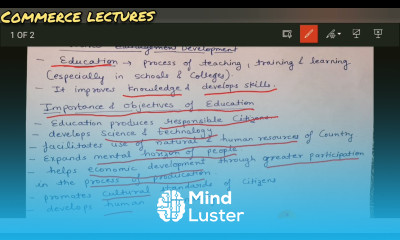 COMMERCE LECTURES
1 OF 2
Management Development
- Education → process of teaching, training & learning.
(especially in schools & Colleges).
- It improves knowledge & develops skills.
Importance & objectives of Education
- Education produces responsible Citizens
- develops Science & technology
facilitates use of natural & human resources of Country
Expands mental horizon of people
helps economic development through greater participation
in the process of production
- promotes cultural standards of citizens
develops human
Mind
Luster